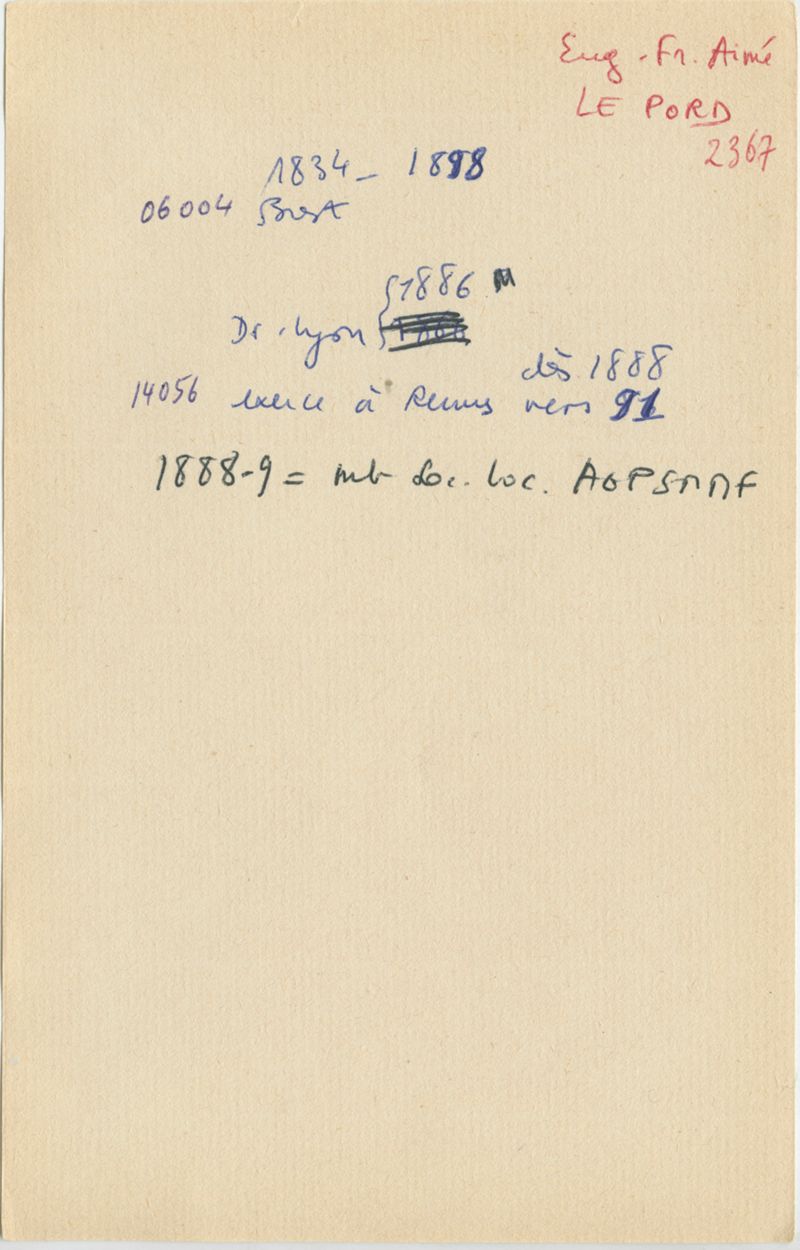 Eug - Fr. Aimé
LE PORD
2367
1834 - 1898
06004 Brest
1886 M
Dr. Lyon
dès 1888
14056 exerce à Rennes vers 91
1888-9 = mb Soc. loc. AGPSMMF